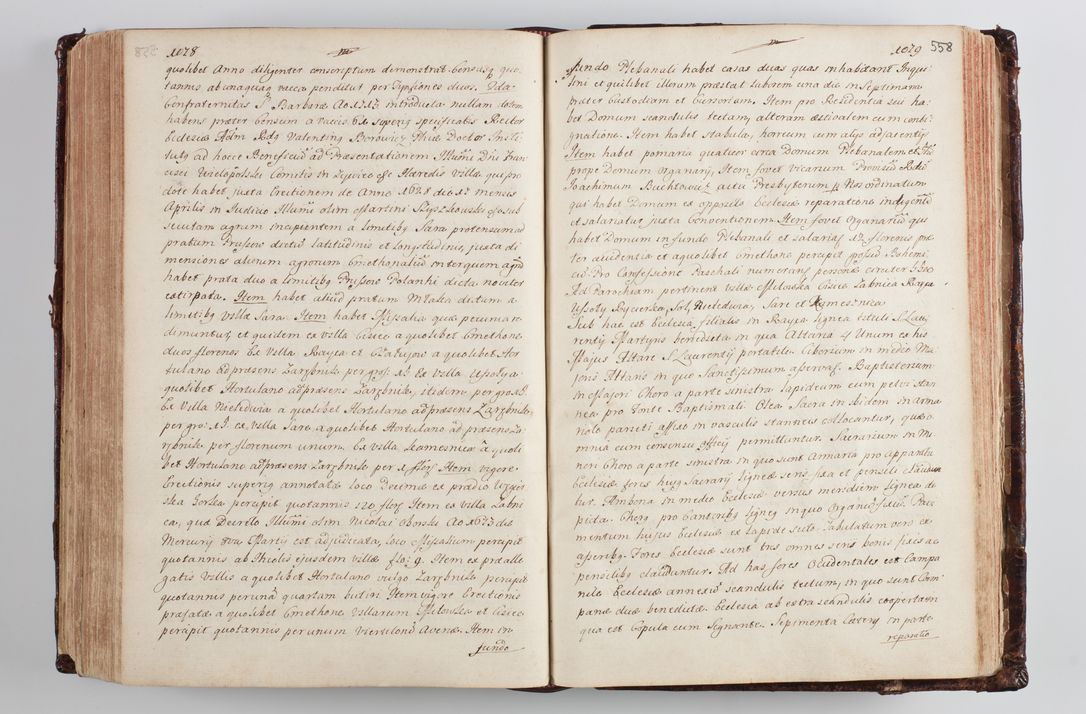 1078
quolibet Anno diligenter conscriptum demonstrat. Census quo
tannis ab unaquaq vacca penditur per Grossiones duos.
Confraternitas S. Barbaræ introducta nullam dotem
habens præter Censum a vaccis. Ex superiq specificatis Rector
Ecclesiæ Adm Rdq Valentinq Borowicz Phiæ Doctor Insti
tutq ad hocce Beneficiu ad Præsentationem Illumi Dni Fran
cisci Wielopolski Comitis in Zywiec Hæredis Villæ qui pro
dote habet juxta Erectionem de Anno 1628 die mensis
Aprilis in Judicio Illumi olim Martini Szyszkowski
agrum incipientem a limitibq Sara protensum ad
pratum dictu latitudinis et longitudinis, juxta di
mensiones aliorum agrorum Cmethonaliu
habet prata duo a limitibq Polanki dicta noviter
extirpata. Item habet aliud pratum dictum a
limitibq Villæ Sara. Item habet Missalia quæ pecunia re
dimuntur, et quidem ex Villa Cisiec a quolibet Cmethone
duos florenos. Ex Villa Rayca et a quolibet Hor
tulano ad præsens Zarębnik per gros: Ex Villa Ussoły a
quolibet Hortulano ad præsens Zarębnik, itidem per gros
Ex Villa Nieledwia a quolibet Hortulano ad præsens Zarębnik
per gro: ex Villa Sare a quolibet Hortulano ad præsens Za
rębnik per florenum unum. Ex Villa Kamesnica a quoli
bet Hortulano ad præsens Zarębnik per Item vigore
Erectionis superiq annotatæ loco Decimæ ex prædio Węgier
ska Gorska percipit quotannis 120 flor Item ex Villa Zabni
ca, qua Decreto Illumi olim Nicolai Oborski die
Mercurij Martij est adjudicata, loco Missalium percipit
quotannis ab Incolis ejusdem villæ flo: 9. Item ex præalle
gatis Villis a quolibet Hortulano vulgo Zarębnik percipit
quotannis per una quartam butiri. Item vigore Erectionis
præfatæ a quolibet Cmethone Villarum Milowka et Cisiec
percipit quotannis per unum Avenæ. Item in
fundo
1079
558
fundo Plebanali habet casas duas quas inhabitant Inqui
lini et quilibet illorum præstat laborem una die in Septimana
præter Custodiam et Cursoriam. Item pro Residentia sui ha
bet Domum scandulis tectam, alteram æstivalem cum conti
gnatione. Item habet Stabula, horreum cum alijs adjacentijs
Item habet pomaria quatuor circa Domum Plebanalem et
prope Domum Organarij, Item fovet Vicarium Provisu Rdu
Joachimum Buchtowicz actu Presbyterum p Nos ordinatum
qui habet Domum ex opposito Ecclesiæ reparatione indigente
et salariatur juxta Conventionem. Item fovet Organariu qui
habet Domum in fundo Plebanali et salarias florenos præ
ter accidentia et a quolibet Cmethone percipit
Pro Confessione Paschali numerans personæ circiter
Ad Parochiam pertinent villæ Milowka Cisiec Zabnica Rayca
Ussoły Rycerka, Sol, Nieledwia, Sare et Kamesznica
Sub hac est Ecclesia filialis in Rayca lignea tituli S. Lau
rentij Martyris benedicta in qua Altaria 4 Unum ex his
Majus Altare S. Laurentij portatile. Ciborium in medio Ma
joris Altaris in quo Sanctissimum asservat. Baptisterium
in Majori Choro a parte sinistra lapideum cum pelvi stan
nea pro Fonte Baptismali. Olea Sacra in ibidem in arma
riolo parieti affixo in vasculis stanneis collocantur, quæ o
mnia cum consensu Officij permittuntur. Sacrarium in Mi
nori Choro a parte sinistra in quo sunt Armaria pro Apparatu
Ecclesiæ fores hujq Sacrarij ligneæ seris fixa et pensili
tur. Ambona in medio Ecclesiæ versus meridiem lignea de
picta. Chorq pro Cantoribq ligneq in quo Organum. Pavi
mentum hujus Ecclesiæ ex lapide secto. Tabulatum vero ex
asseribq. Fores Ecclesiæ sunt tres omnes seris bonis fixis ac
pensilibq clauduntur. Ad has fores Occidentales est Campa
nile Ecclesiæ annexu scandulis tectum, in quo sunt Cam
panæ duæ benedictæ. Ecclesia ab extra scandulis cooperta in
qua est Copula cum Signante. Sepimenta in parte
reparatio